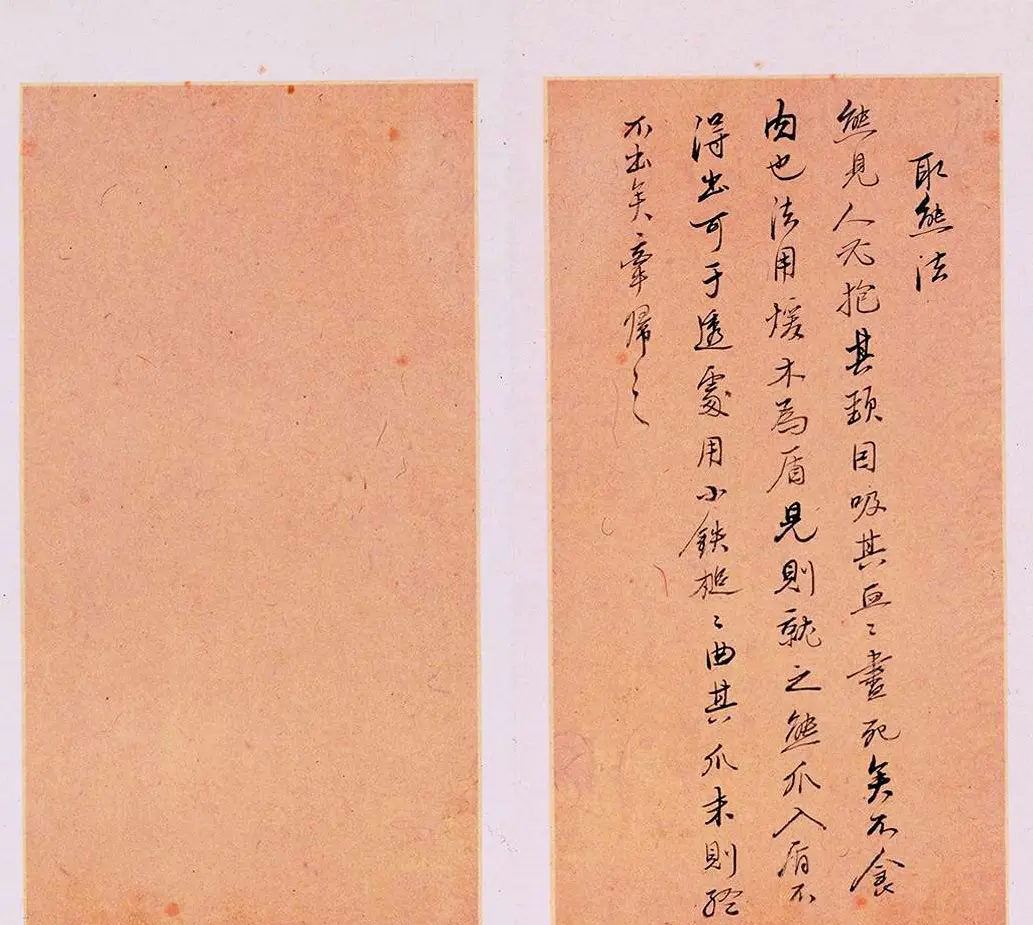 取熊法
熊見人只抱其頸目吸其血〻盡死矣不食
肉也法用煖木為盾見則就之熊爪入盾不
得出可于透處用小鉄槌〻曲其爪末則終
不出矣牽歸〻